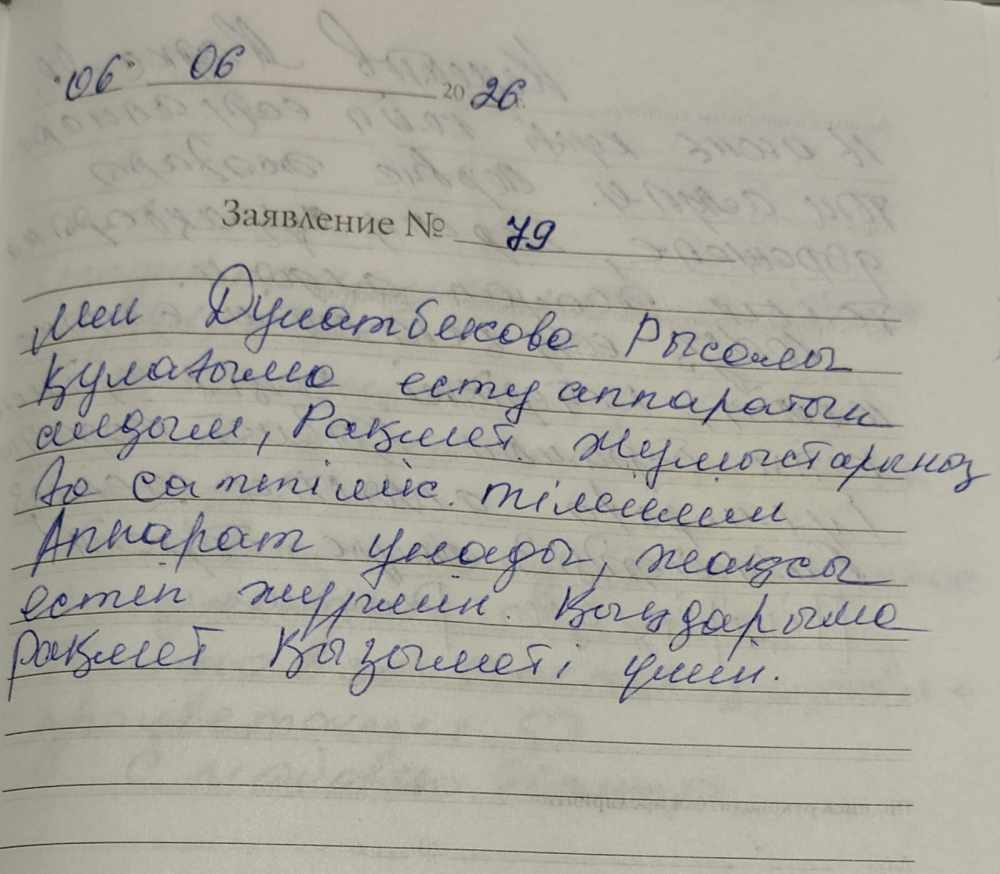 "06" 06 2026 г.
Заявление № 79
Мен Дулатбекова Рысалы
құлағыма есту аппаратын
алдым, Рақмет. Жұмыстарыңыз
ға сәттілік тілеймін
Аппарат ұнады, жақсы
естіп жүрмін. Қыздарыма
рақмет қызыметі үшін.